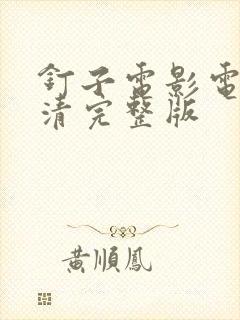 釘子電影電
清完整版
黃順鳳